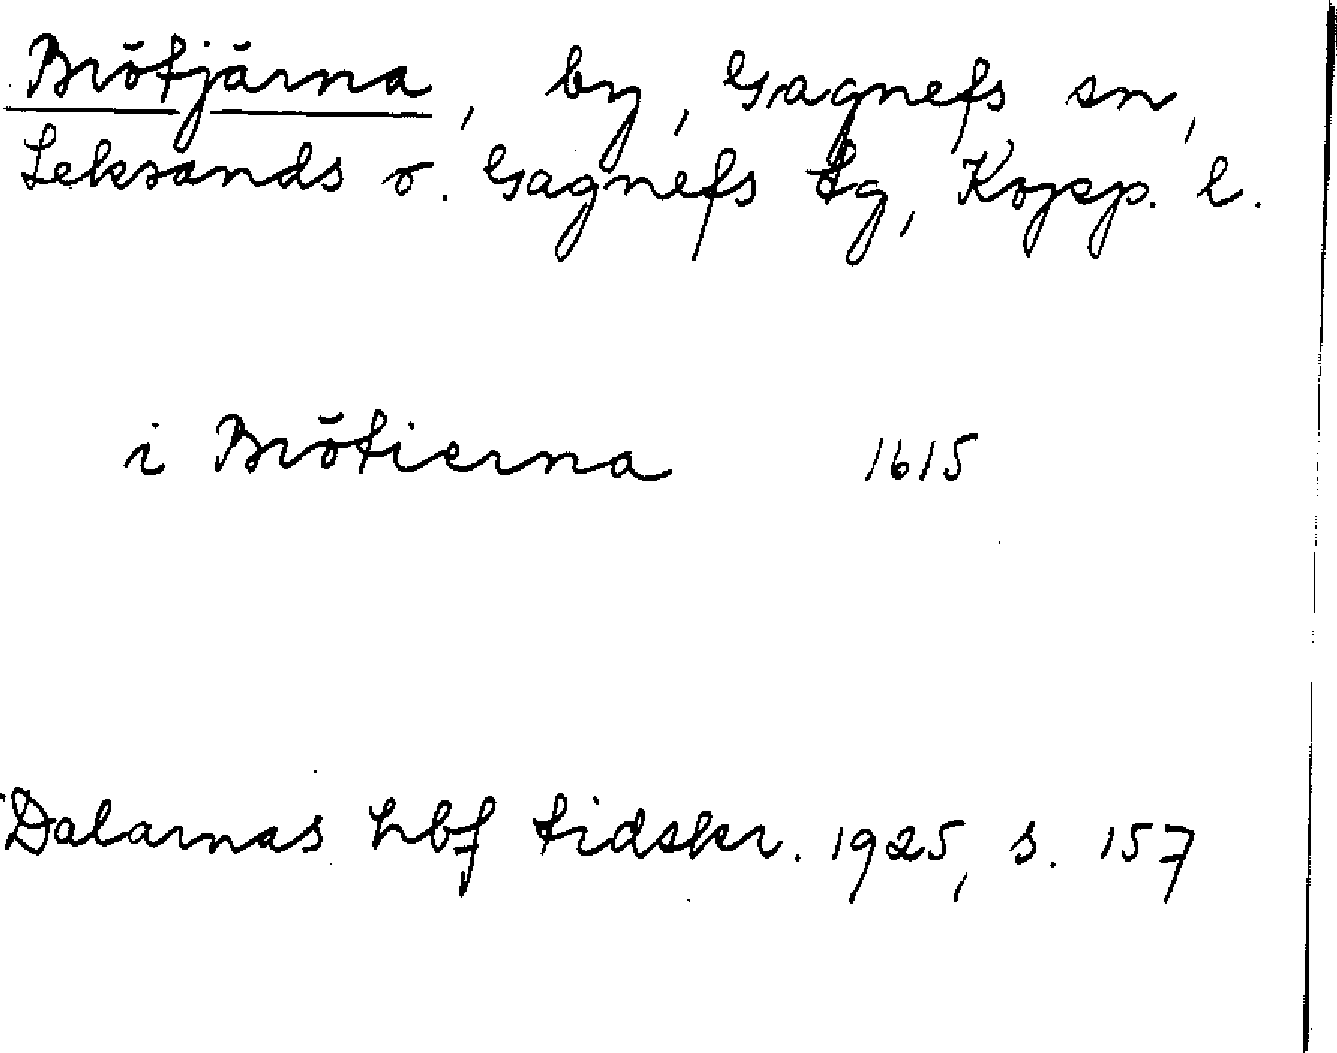 Brötjärna, by, Gagnefs sn,
Leksands o. Gagnefs tg, Kopp. l.
i Brötierna 1615
Dalarnas hbf tidskr. 1925, s. 157